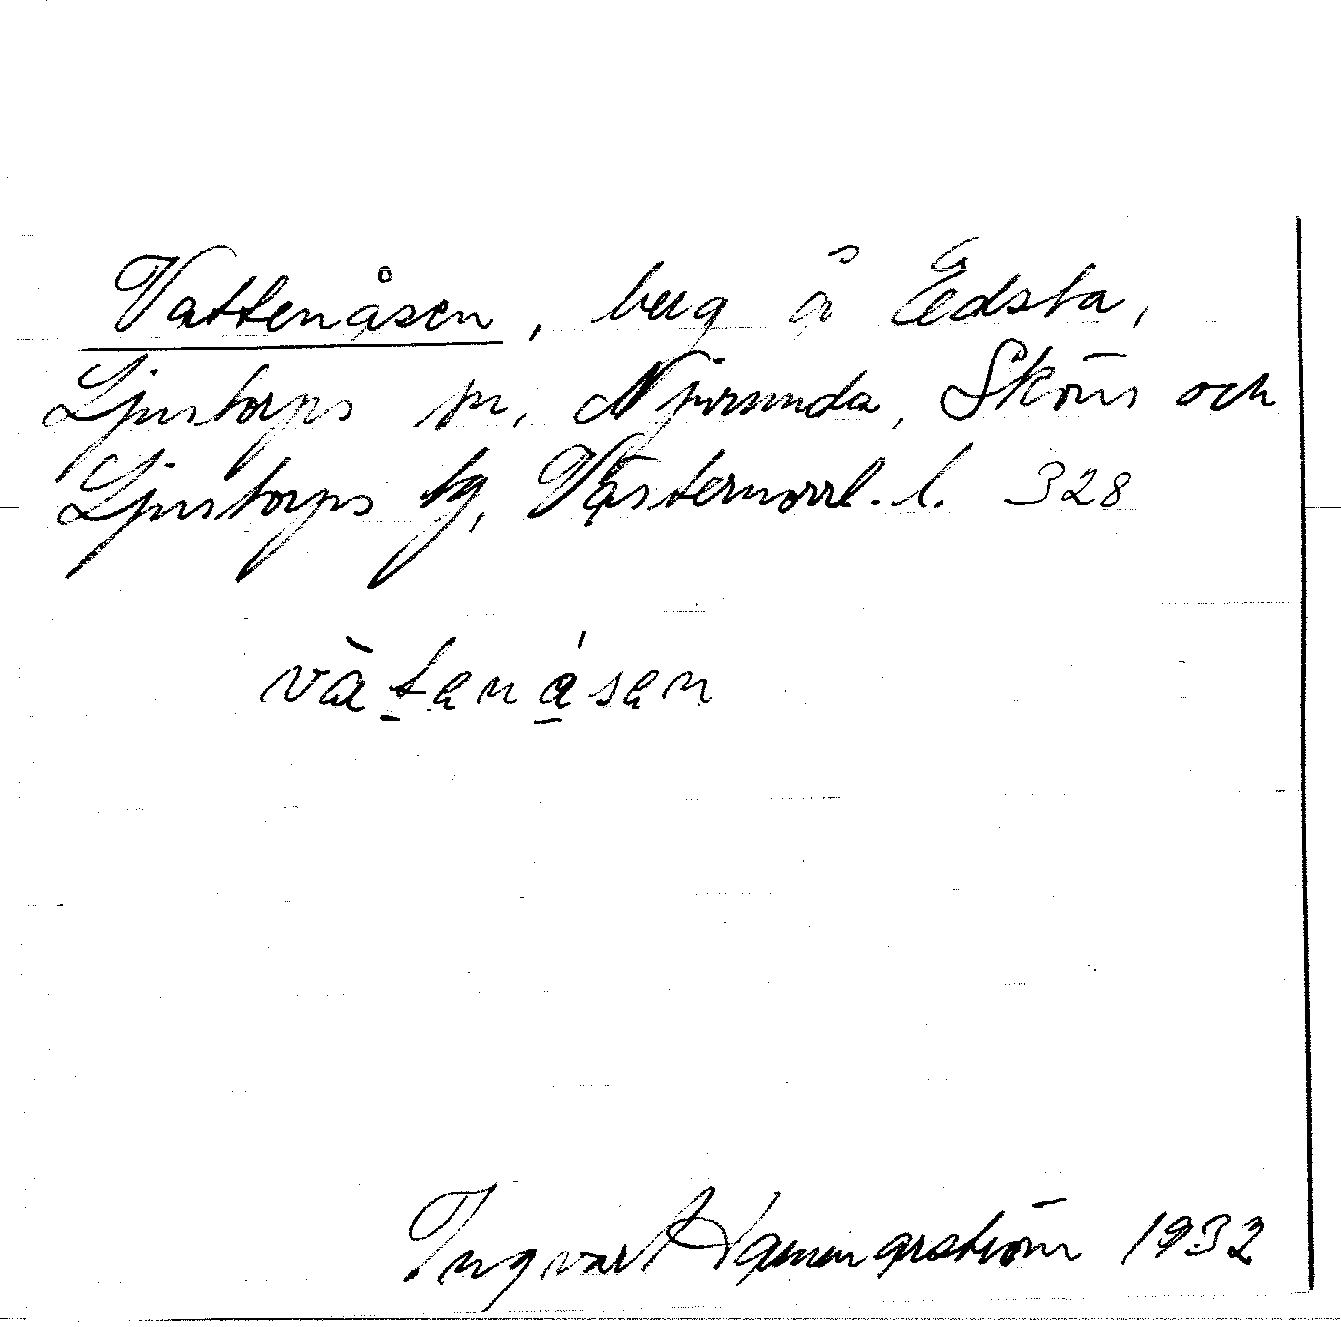 Vattenåsen, berg å Edsta,
Ljustorps sn, Njurunda, Sköns och
Ljustorps tg, Västernorrl. l. 328
vàtanásan
Ingvar Hammarström 1932